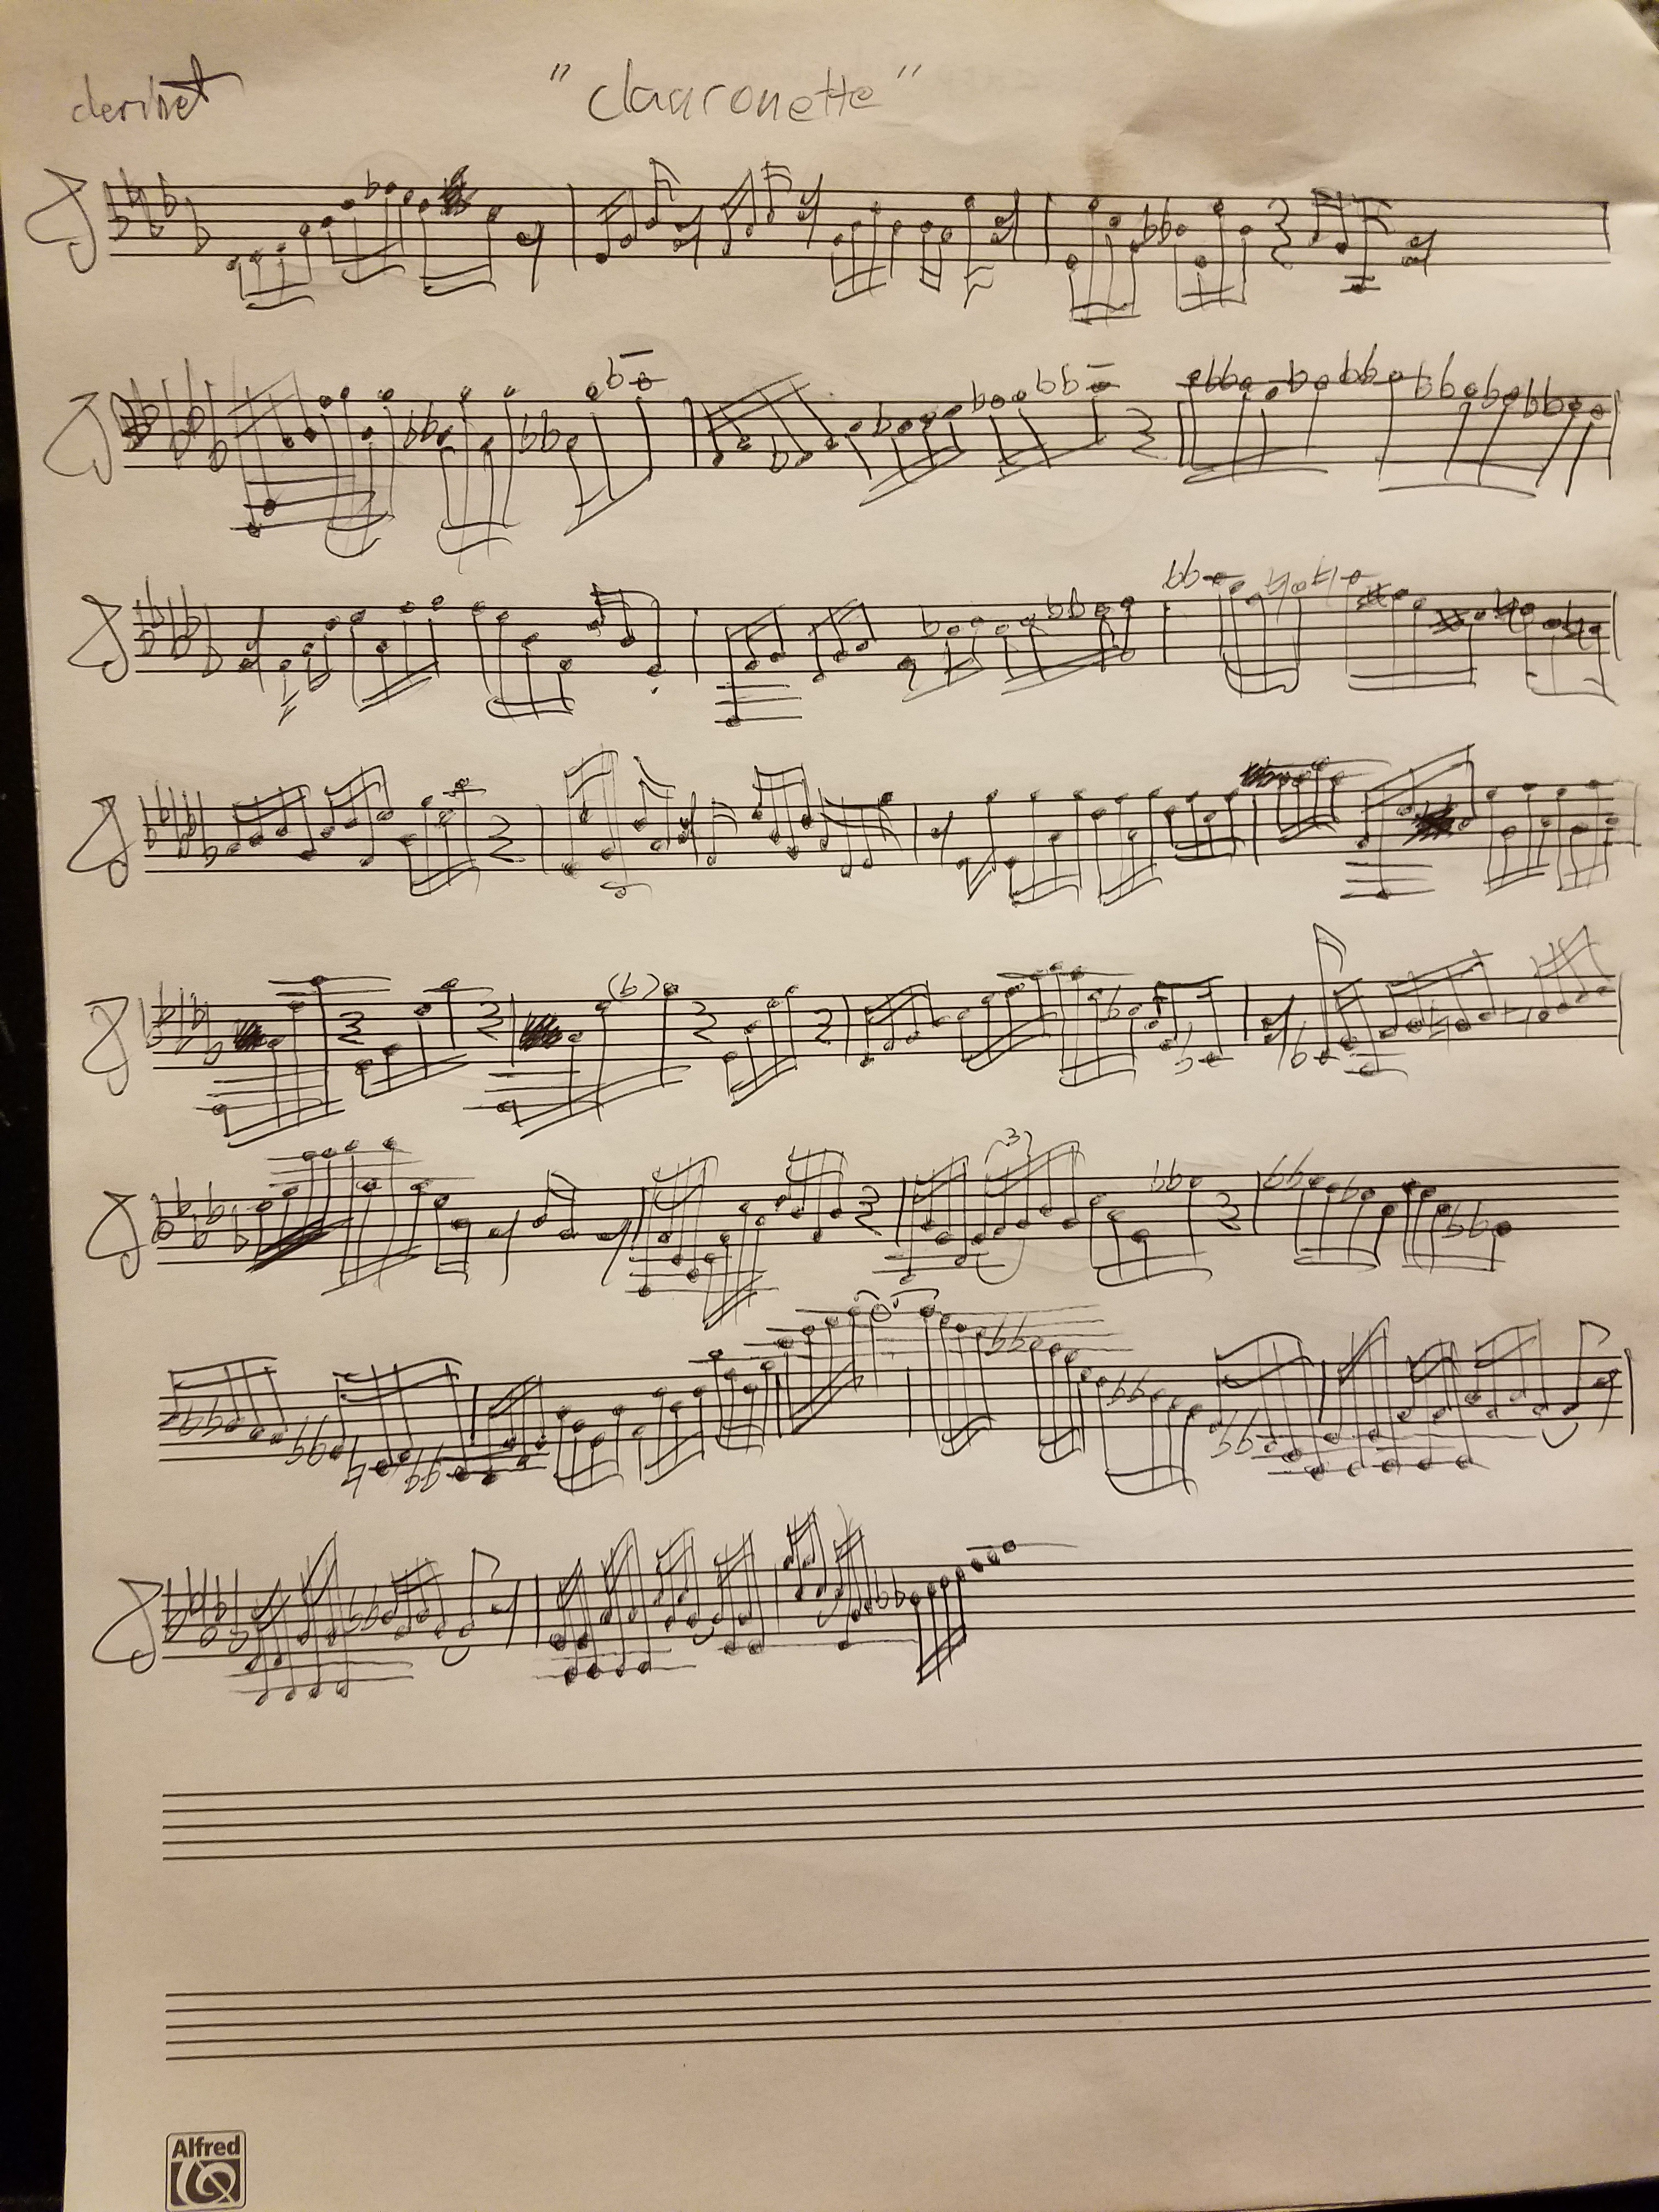 clerihet "claaronette"
3
Alfred